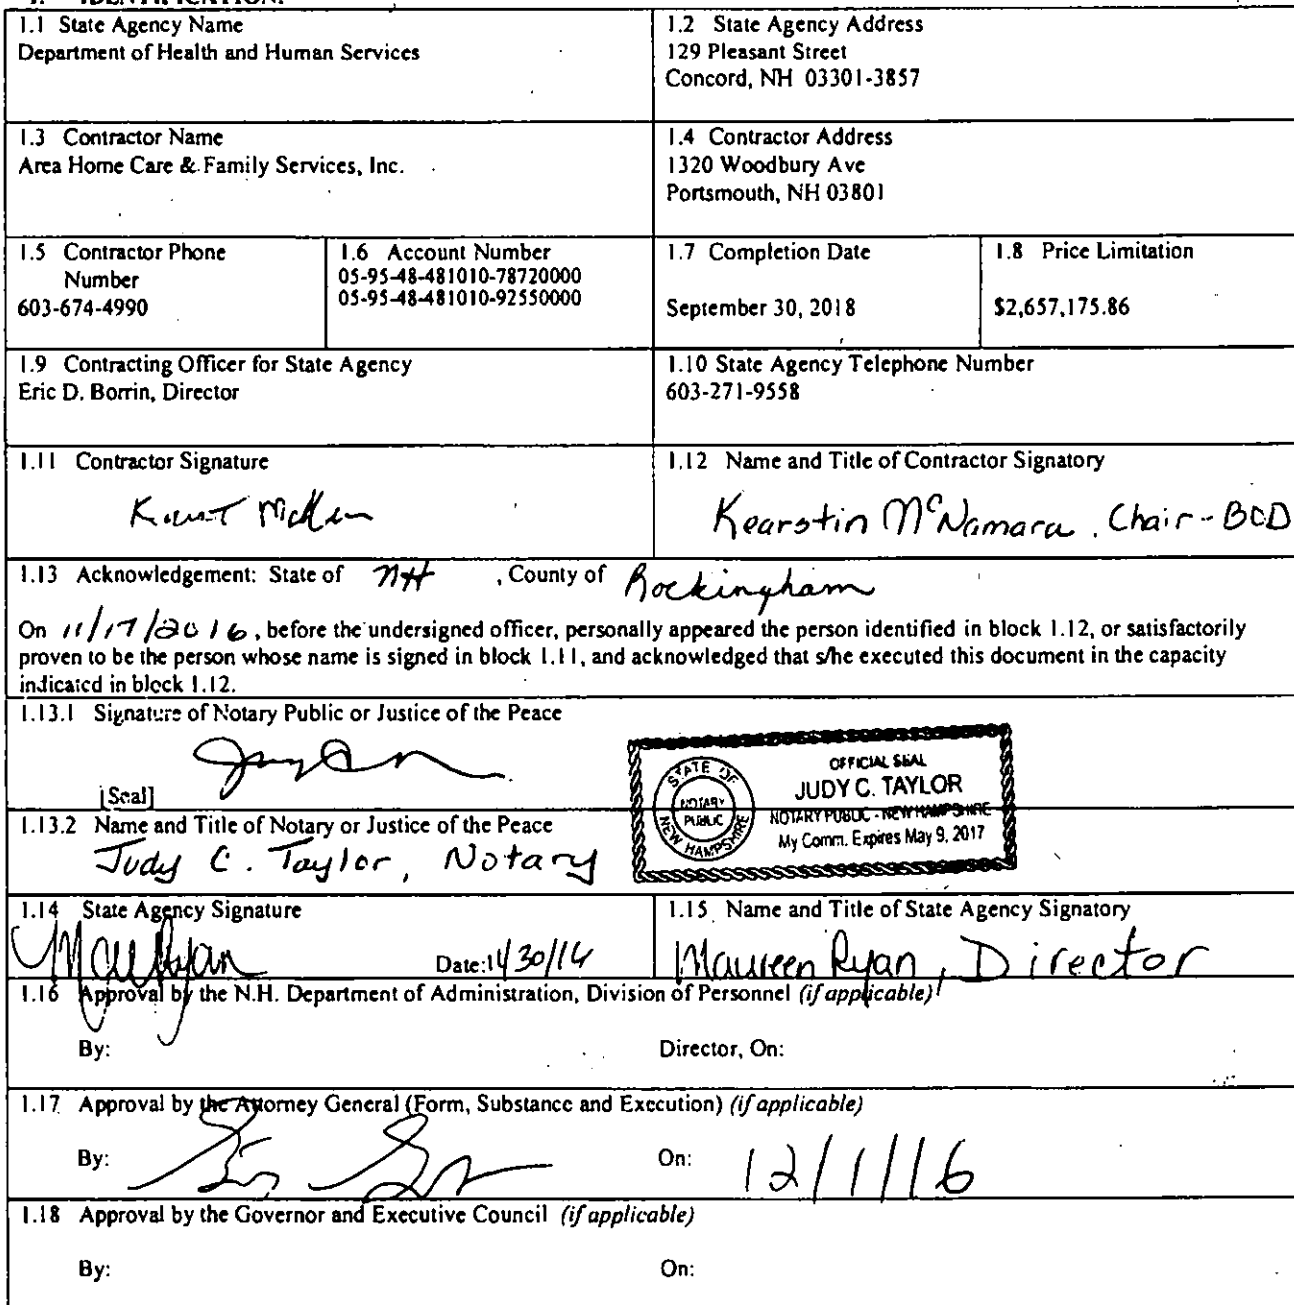 I. IDENTIFICATION.
1.1 State Agency Name
Department of Health and Human Services
1.2 State Agency Address
129 Pleasant Street
Concord, NH 03301-3857
1.3 Contractor Name
Area Home Care & Family Services, Inc.
1.4 Contractor Address
1320 Woodbury Ave
Portsmouth, NH 03801
1.5 Contractor Phone
Number
603-674-4990
1.6 Account Number
05-95-48-481010-78720000
05-95-48-481010-92550000
1.7 Completion Date
September 30, 2018
1.8 Price Limitation
$2,657,175.86
1.9 Contracting Officer for State Agency
Eric D. Borrin, Director
1.10 State Agency Telephone Number
603-271-9558
1.11 Contractor Signature
1.12 Name and Title of Contractor Signatory
Kearstin McNamara, Chair-BOD
1.13 Acknowledgement: State of NH , County of Rockingham
On 11/17/2016, before the undersigned officer, personally appeared the person identified in block 1.12, or satisfactorily
proven to be the person whose name is signed in block 1.11, and acknowledged that s/he executed this document in the capacity
indicated in block 1.12.
1.13.1 Signature of Notary Public or Justice of the Peace
[Seal]
STATE OF NEW HAMPSHIRE
NOTARY PUBLIC
OFFICIAL SEAL
JUDY C. TAYLOR
NOTARY PUBLIC - NEW HAMPSHIRE
My Comm. Expires May 9, 2017
1.13.2 Name and Title of Notary or Justice of the Peace
Judy C. Taylor, Notary
1.14 State Agency Signature
Date: 11/30/16
1.15 Name and Title of State Agency Signatory
Maureen Ryan, Director
1.16 Approval by the N.H. Department of Administration, Division of Personnel (if applicable)
By:
Director, On:
1.17 Approval by the Attorney General (Form, Substance and Execution) (if applicable)
By:
On: 12/1/16
1.18 Approval by the Governor and Executive Council (if applicable)
By:
On: